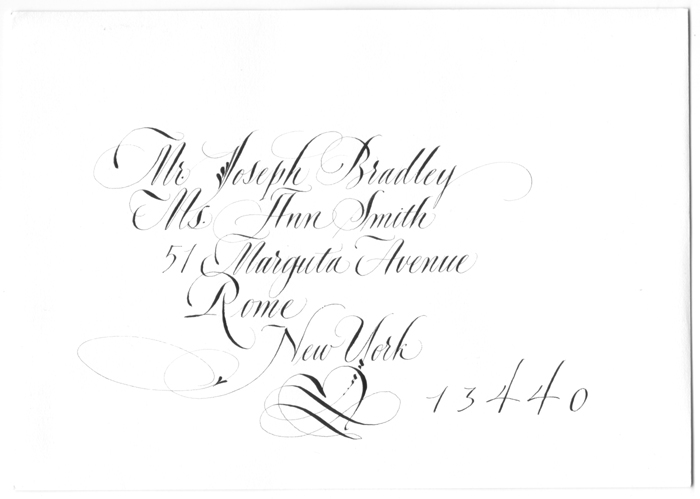 Mr. Joseph Bradley
Ms. Ann Smith
51 Marguta Avenue
Rome
New York
13440